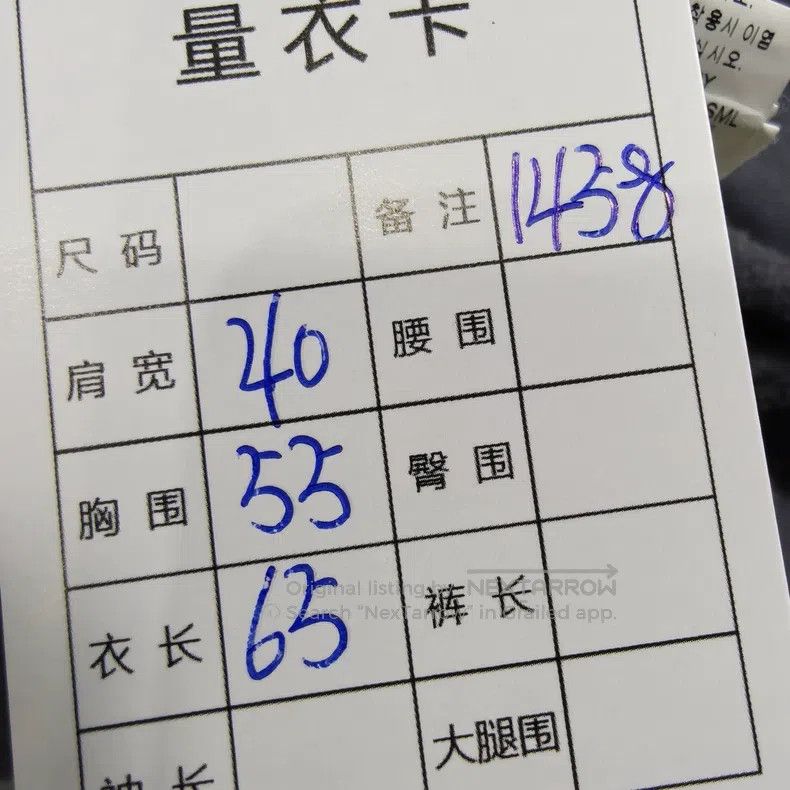 量衣卡
착용시 이염
십시오.
SML
尺码 备注 1438
肩宽 40 腰围
胸围 55 臀围
Original listing by NEXTARROW
Search "NexTarrow" in Grailed app.
衣长 65 裤长
袖长 大腿围